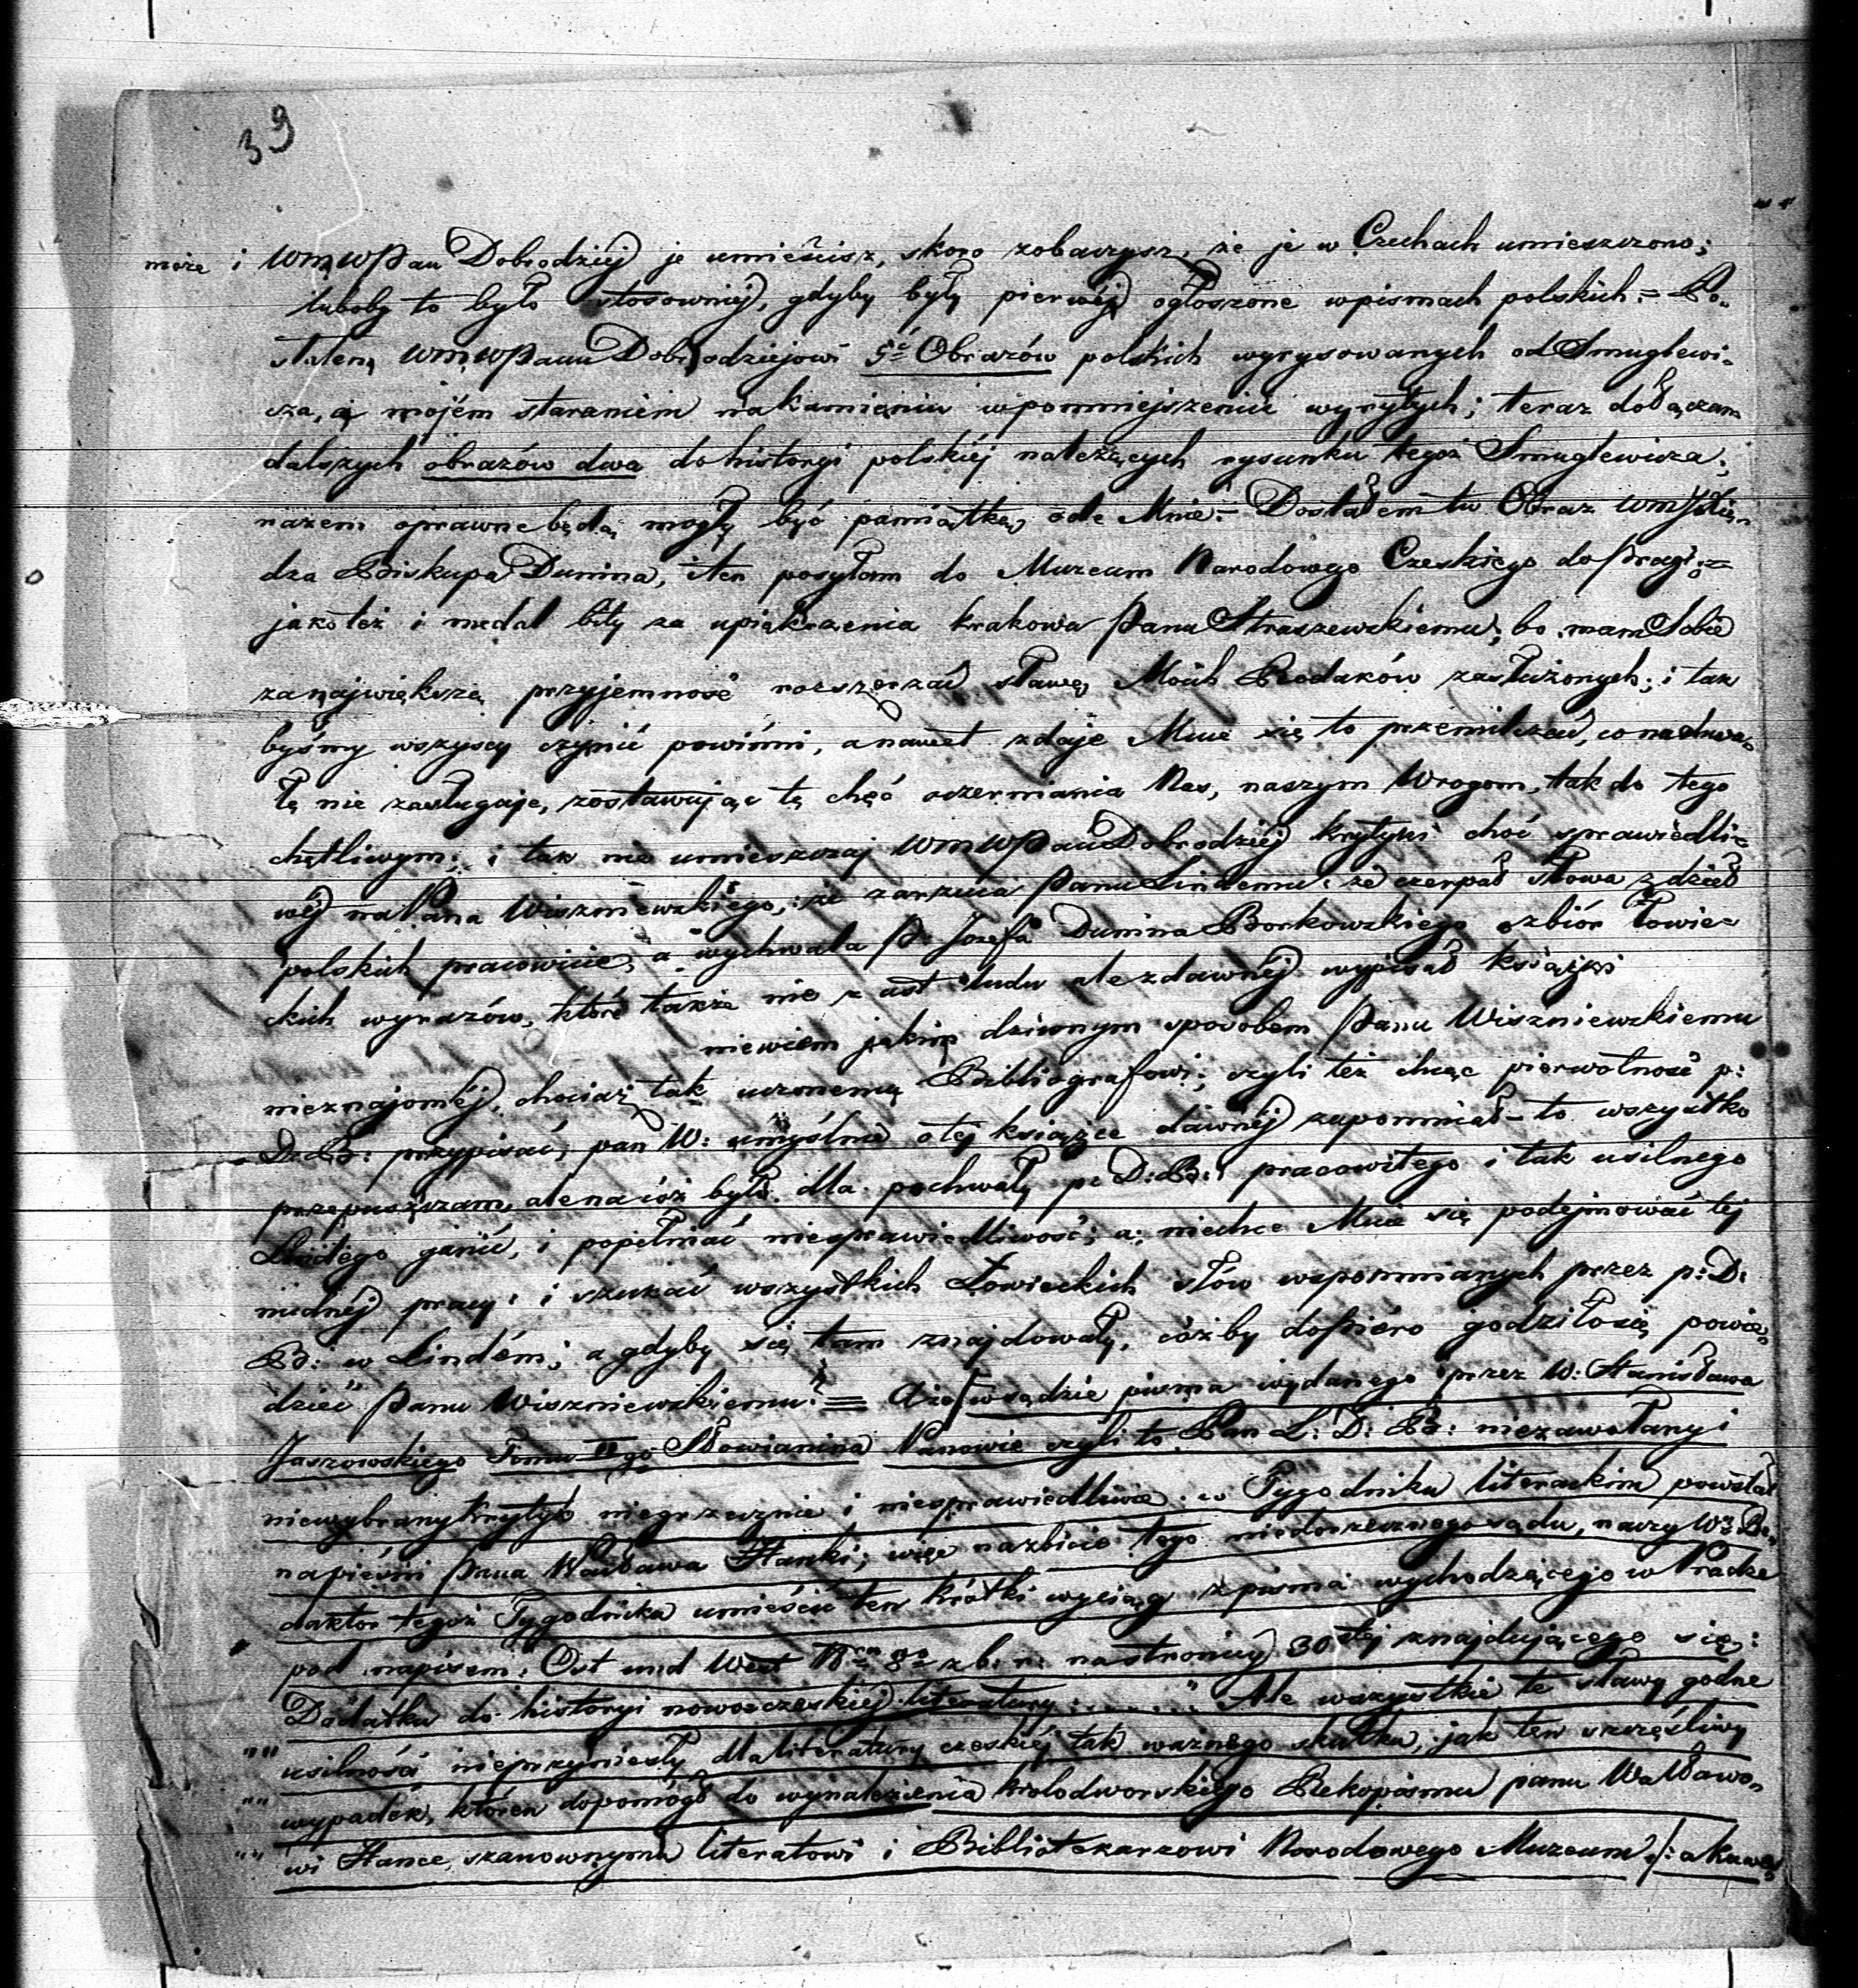 39
może i WmWPan Dobrodziéj je umieścisz, skoro zobaczysz, że je w Czechach umieszczono;
luboby to było stosowniéj, gdyby były pierwéj ogłoszone wpismach polskich. = Po-
słałem WmWPanu Dobrodziejowi 5ć Obrazów polskich wyrysowanych od Smuglewi-
cza, a mojém staraniem nakamieniu wpomniejszeniu wyrytych; teraz dołączam
dalszych obrazów dwa dohistoryi polskiéj należących rysunku tegoż Smuglewicza;
razem oprawne będą mogły być pamiątką ode Mnie. - Dostałem tu Obraz WmJXię-
dza Biskupa Dunina, iten posyłam do Muzeum Narodowego Czeskiego do Pragi; =
jakoteż i medal bity za upiękrzenia Krakowa Panu Straszewskiemu; bo mam Sobie
zanajwiększą przyjemność rozszerzać sławę Moich Rodaków zasłużonych; i tak
byśmy wszyscy czynić powinni, anawet zdaje Mnie się to przemilczeć, co nachwa-
łę nie zasługuje, zostawując tę chęć oczerniania Nas, naszym Wrogom, tak do tego
chętliwym; i tak nie umieszczaj WmWPanDobrodziéj krytyki choć sprawiedli-
wéj naPana Wiszniewskiego, że zarzuca Panu Lindemu, że czerpał słowa zdzieł
polskich pracowicie, a wychwala P. Jozefa Dunina Borkowskiego zbiór Łowie-
ckich wyrazów, które także nie z ust ludu ale zdawnéj wypisał książki
niewiem jakim dziwnym sposobem Panu Wiszniewskiemu
nieznajoméj, chociaż tak uczonemu Bibliografowi; czyli téż chcąc pierwotność p:
D: B: przypisać; pan W: umyślnie otéj książce dawnéj zapomniał - to wszystko
przepuszczam, alenacóż było dla pochwały p: D: B: pracowitego i tak usilnego
Lindego ganić, i popełniać niesprawiedliwość; a niechce Mnie się podejmować téj
nudnéj pracy: i szukać wszystkich Łowieckich słów wspomnianych przez p: D:
B: w Lindém; a gdyby się tam znajdowały, cóżby dopiéro godziłosię powie-
dzieć Panu Wiszniewskiemu? = Ażo wsądzie pisma wydanego przez W: Stanisława
Jaszowskiego Tomu IIgo Słowianina Panowie czyli to Pan L: D: B: niezawołany i
niewybrany Krytyk niegrzecznie i niesprawiedliwie w Tygodniku literackim powstał
napieśni Pana Wacława Hanki; więc nazbicie tego niedorzecznego sądu, raczy Wny Re-
daktor tegoż Tygodnika umieścić ten krótki wyciąg zpisma wychodzącego w Pradze
pod napisem: Ost und West z b: r: nastronicy 30stéj znajdującego się:
Dodatku do historyi nowoczeskiéj literatury: ......." Ale wszystkie te sławy godne
"" usilności nieprzyniosły dlaliteratury czeskiéj tak ważnego skutku, jak ten szczęśliwy
"" wypadek, któren dopomógł do wynalezienia krolodworskiego Rekopismu panu Wacławo-
"" wi Hance, szanownymu literatowi i Bibliotekarzowi Narodowego Muzeum